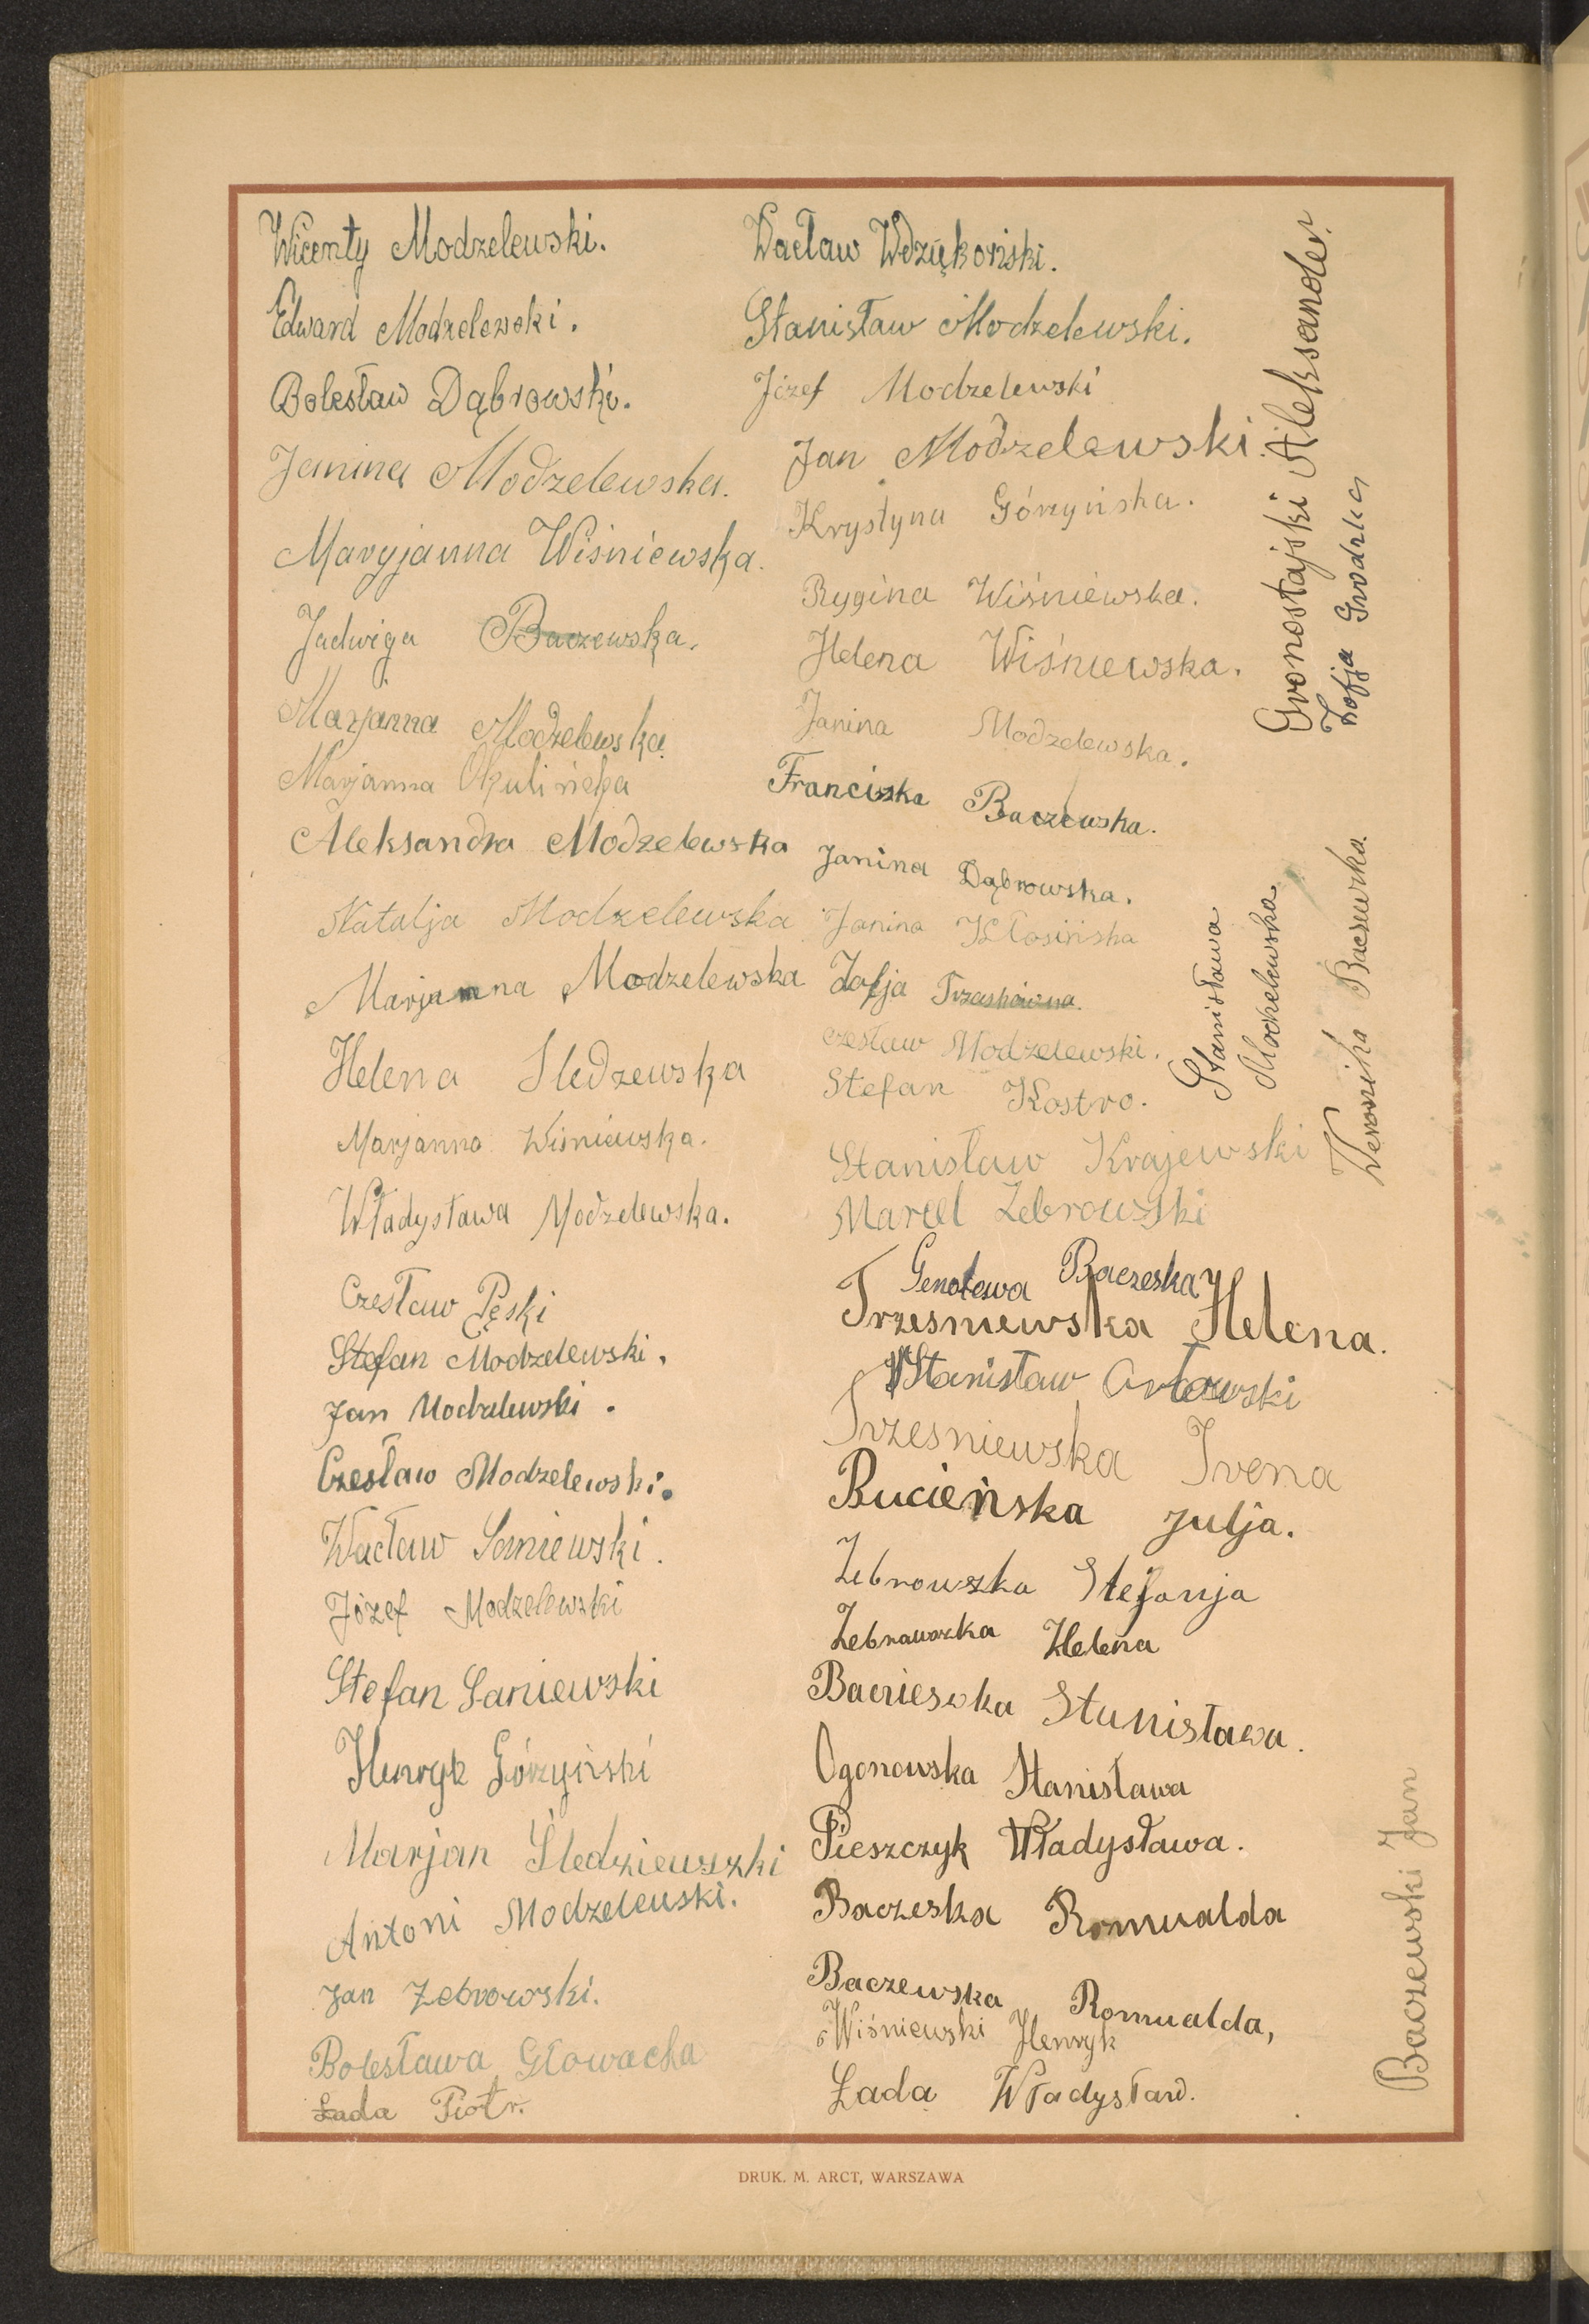 Wicenty Modzelewski.
Edward Modzelewski.
Bolesław Dąbrowski.
Janina Modzelewska.
Maryjanna Wiśniewska.
Jadwiga Baczewska.
Marjanna Modzelewska
Marjanna Okulińska
Aleksandra Modzelewska
Natalja Modzelewska
Marjanna Modzelewska
Helena Sledzewska
Marjanna Wiśniewska.
Władysława Modzelewska.
Czesław Pęski
Stefan Modzelewski.
Jan Modzelewski.
Czesław Modzelewski.
Wacław Saniewski.
Józef Modzelewski
Stefan Saniewski
Henryk Górzyński
Marjan Śledziewski
Antoni Modzelewski.
Jan Zebrowski.
Bolesława Głowacka
Łada Piotr.
Wacław Wdziękoński.
Stanisław Modzelewski.
Józef Modzelewski
Jan Modzelewski.
Krystyna Górzyńska.
Rygina Wiśniewska.
Helena Wiśniewska.
Janina Modzelewska.
Franciszka Baczewska.
Janina Dąbrowska.
Janina Kłosińska
Zofja Trzaskówna.
Czesław Modzelewski.
Stefan Kostro.
Stanisław Krajewski
Marcel Zebrowski
Genołewa Baczeska
Trzesniewska Helena.
Stanisław
Trzesniewska Irena
Rucieńska Julja.
Zebrowska Stefanja
Zebrawska Helena
Stanisława.
Ogonowska Stanisława
Pieszczyk Władysława.
Baczeska Romualda
Baczewska Romualda,
Wiśniewski Henryk
Łada Władysław.
Gronostajski Aleksander.
Zofja Grodzka
Stanisława
Modzelewska
Weronika Baczewska.
Baczewski Jan
DRUK. M. ARCT, WARSZAWA